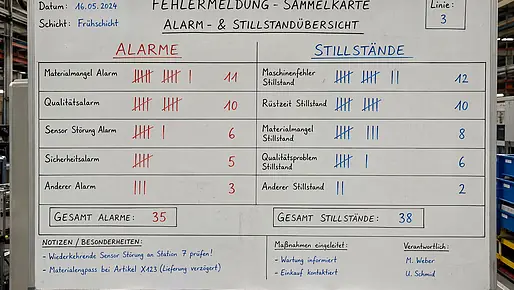 FEHLERMELDUNG - SAMMELKARTE
Datum: 16.05.2024
Schicht: Frühschicht
ALARM- & STILLSTANDÜBERSICHT
Linie:
3
ALARME
Materialmangel Alarm 11
Qualitätsalarm 10
Sensor Störung Alarm 6
Sicherheitsalarm 5
Anderer Alarm 3
GESAMT ALARME: 35
STILLSTÄNDE
Maschinenfehler
Stillstand 12
Rüstzeit Stillstand 10
Materialmangel
Stillstand 8
Qualitätsproblem
Stillstand 6
Anderer Stillstand 2
GESAMT STILLSTÄNDE: 38
NOTIZEN / BESONDERHEITEN:
- Wiederkehrende Sensor Störung an Station 7 prüfen!
- Materialengpass bei Artikel X123 (Lieferung verzögert)
Maßnahmen eingeleitet:
- Wartung informiert
- Einkauf kontaktiert
Verantwortlich:
M. Weber
U. Schmid